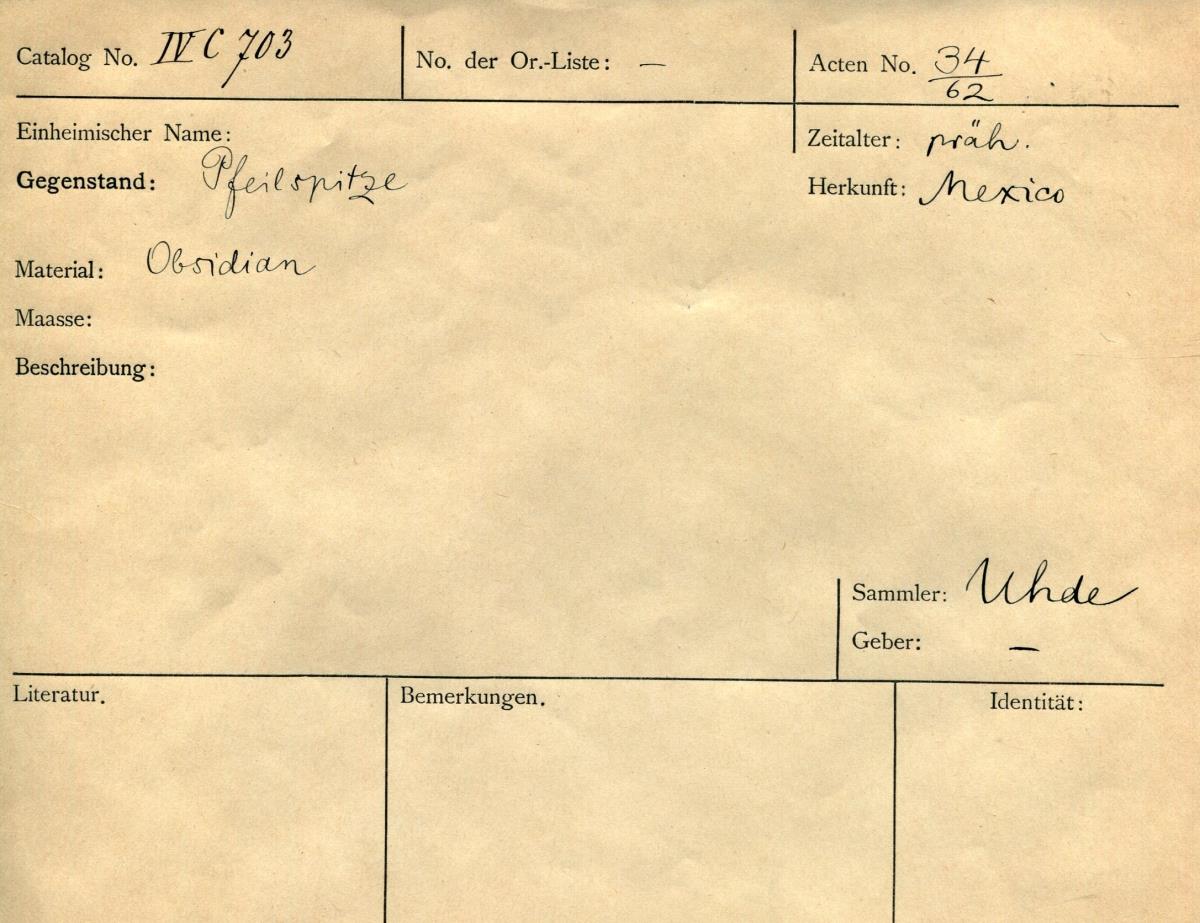 Catalog No. IV C 703
No. der Or.-Liste: —
Acten No. 34/62
Einheimischer Name:
Zeitalter: präh.
Gegenstand: Pfeilspitze
Herkunft: Mexico
Material: Obsidian
Maasse:
Beschreibung:
Sammler: Uhde
Geber: —
Literatur.
Bemerkungen.
Identität: